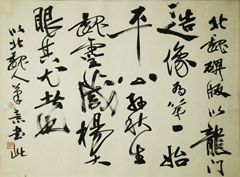 北魏碑版以龍門
造像為第一始
平公孫秋生
魏靈藏楊大
眼其尤者也
以北魏人筆意書此